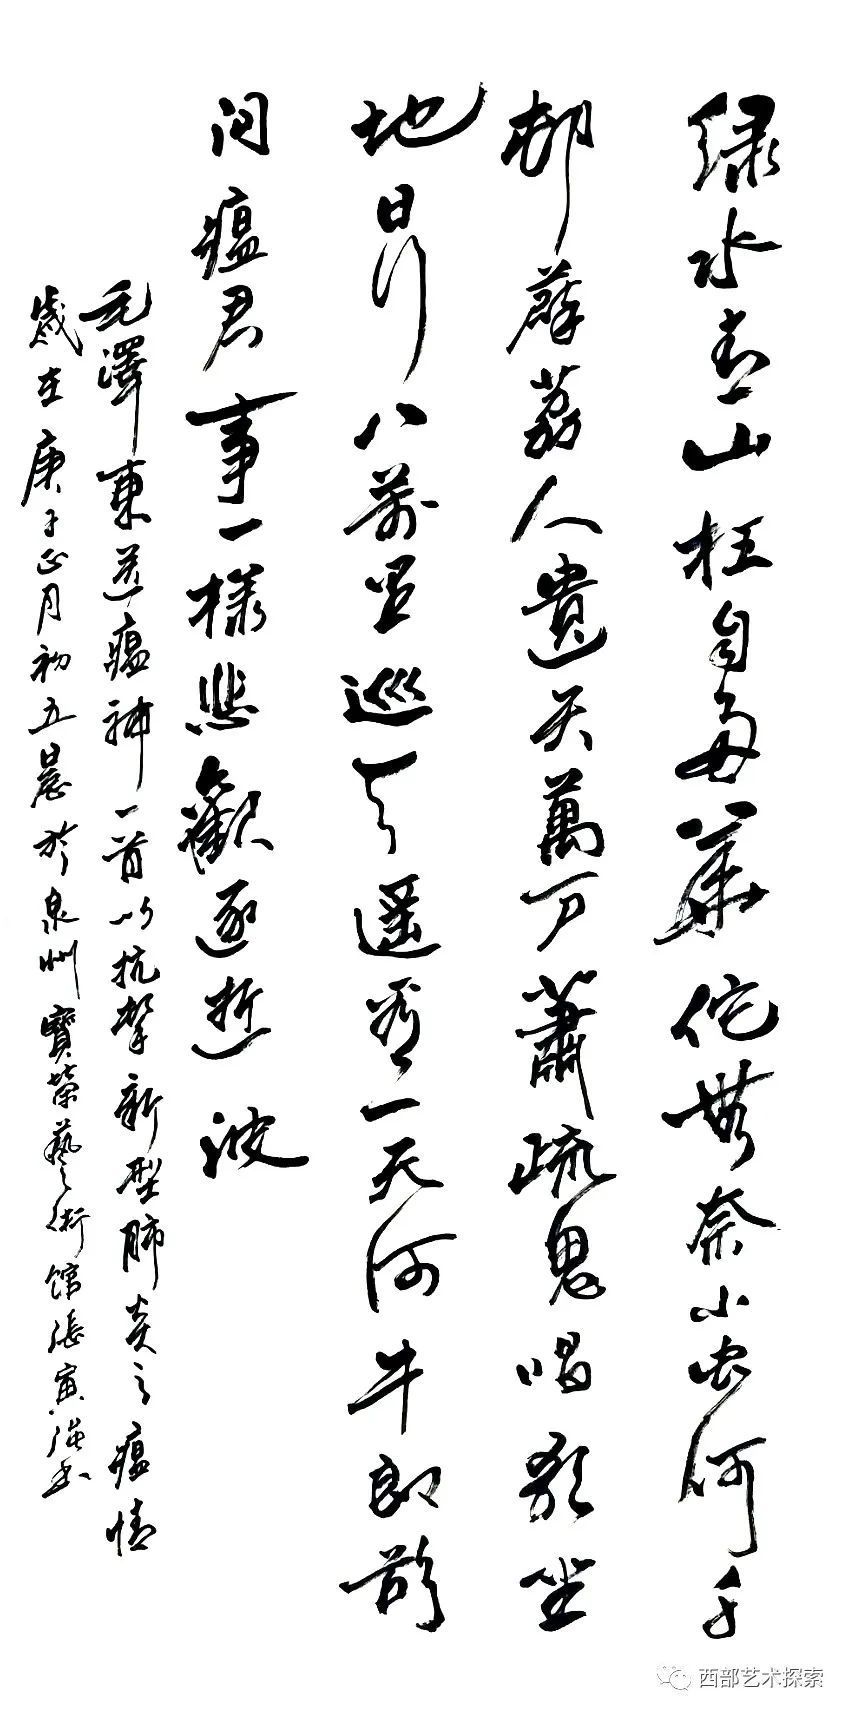 绿水青山枉自多華佗無奈小虫何千
邨薜荔人遺矢萬户蕭疏鬼唱歌坐
地日行八萬里巡天遥看一天河牛郎欲
问瘟君事一樣悲歡逐逝波
毛澤東送瘟神一首以抗擊新型肺炎之瘟情
歲在庚子正月初五晨於泉州寶榮藝術館張寅书
西部艺术探索